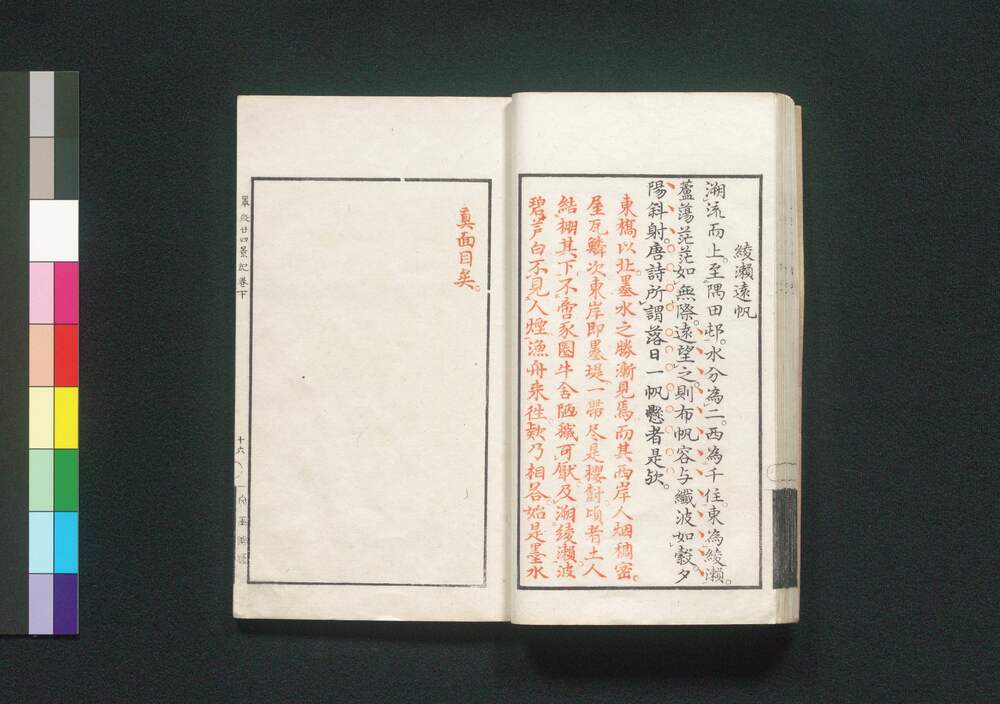 綾瀬遠帆
溯流而上。至隅田邨。水分為二。西為千住。東為綾瀬。
蘆蕩茫茫如無際。遠望之則布帆容与纖波如縠。夕
陽斜射。唐詩所謂落日一帆懸者是欤。
東橋以北。墨水之勝漸見焉。而其西岸人烟稠密。
屋瓦鱗次。東岸即墨堤。一帯尽是櫻樹。頃者土人
結棚其下。不啻豕圂牛舍。陋穢可厭。及溯綾瀬。波
碧芦白。不見人煙。漁舟来往。欸乃相答。始是墨水
真面目矣。
廿四景記巻下
十六